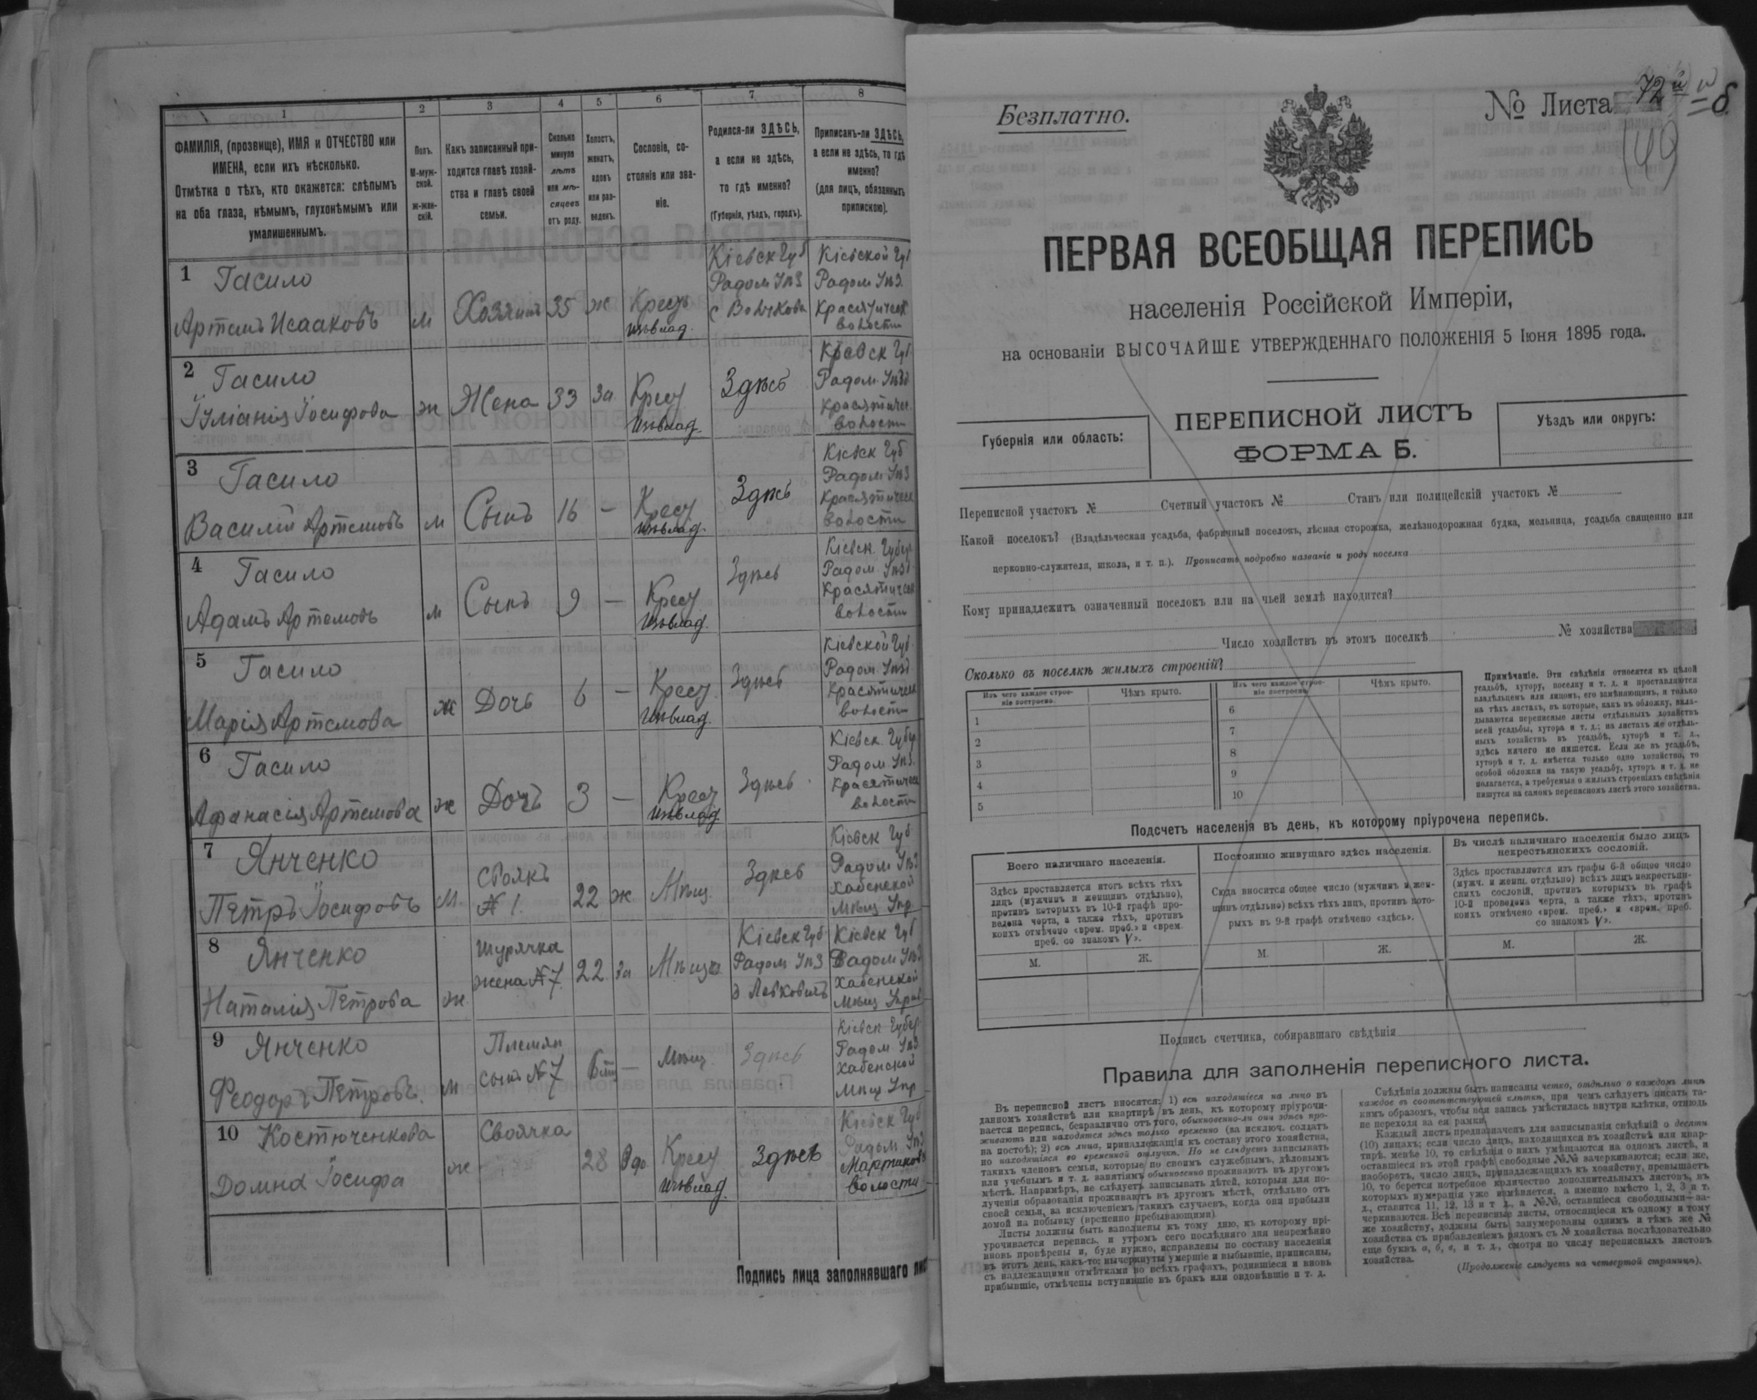 1 2 3 4 5 6 7 8
ФАМИЛІЯ, (прозвище), ИМЯ и ОТЧЕСТВО или
ИМЕНА, если ихъ нѣсколько.
Отмѣтка о тѣхъ, кто окажется: слѣпымъ
на оба глаза, нѣмымъ, глухонѣмымъ или
умалишеннымъ.
Полъ.
М-муж-
ской.
Ж-жен-
скій.
Какъ записанный при-
ходится главѣ хозяй-
ства и главѣ своей
семьи.
Сколько
минуло
лѣтъ
или мѣ-
сяцевъ
отъ роду.
Холостъ,
женатъ,
вдовъ
или раз-
веденъ.
Сословіе, со-
стояніе или зва-
ніе.
Родился-ли ЗДѢСЬ,
а если не здѣсь,
то гдѣ именно?
(Губернія, уѣздъ, городъ).
Приписанъ-ли ЗДѢСЬ,
а если не здѣсь, то гдѣ
именно?
(для лицъ, обязанныхъ
припискою).
1 Гасило
Артемъ Исааковъ
м
Хозяинъ
35
ж
Крест
Кіевск Губ
Радом Уѣз
Кіевской Губ
Радом Уѣз.
волости
2 Гасило
Іуліанія Іосифова
ж
Жена
33
за
Крест
Здѣсь
Кіевск Губ.
Радом. Уѣзд
волости
3 Гасило
Василій Артемовъ
м
Сынъ
16
—
Крест
Здѣсь
Кіевск Губ
Радом Уѣз
волости
4 Гасило
Адамъ Артемовъ
м
Сынъ
9
—
Крест
Здѣсь
Кіевск. Губер
Радом Уѣзд.
волости
5 Гасило
Марія Артемова
ж
Дочь
6
—
Крест
Здѣсь
Кіевской Губ.
Радом. Уѣзд
волости
6 Гасило
Афанасія Артемова
ж
Дочь
3
—
Крест
Здѣсь
Кіевск. Губер
Радом Уѣз.
волости
7 Янченко
Петръ Іосифовъ
м.
своякъ
№ 1.
22
ж
Мѣщ.
Здѣсь
Кіевск Губ
Радом Уѣз
Хабенской
Мѣщ Упр.
8 Янченко
Наталія Петрова
ж
Шурячка
жена № 7
22
за
Кіевск Губ
Радом Уѣз
Кіевск Губ
Радом Уѣз
Хабенской
Мѣщ Управ
9 Янченко
Феодоръ Петровъ.
м
Племян
сынъ № 7
—
Мѣщ.
Здѣсь
Кіевск Губер
Радом Уѣз
Хабенской
Мѣщ Упр
10 Костюченкова
Домна Іосифа
ж
Своячка
28
Вдо
Крест
Здѣсь
Кіевск Губ
Радом Уѣз
волости
Подпись лица заполнявшаго
Безплатно.
№ Листа 72
149
ПЕРВАЯ ВСЕОБЩАЯ ПЕРЕПИСЬ
населенія Россійской Имперіи,
на основаніи ВЫСОЧАЙШЕ УТВЕРЖДЕННАГО ПОЛОЖЕНІЯ 5 Іюня 1895 года.
Губернія или область:
ПЕРЕПИСНОЙ ЛИСТЪ
ФОРМА Б.
Уѣздъ или округъ:
Переписной участокъ № Счетный участокъ № Станъ или полицейскій участокъ №
Какой поселокъ? (Владѣльческая усадьба, фабричный поселокъ, лѣсная сторожка, желѣзнодорожная будка, мельница, усадьба священно или
церковно-служителя, школа, и т. п.). Прописать подробно названіе и родъ поселка
Кому принадлежитъ означенный поселокъ или на чьей землѣ находится?
Число хозяйствъ въ этомъ поселкѣ № хозяйства
Сколько въ поселкѣ жилыхъ строеній?
Изъ чего каждое строе-
ніе построено.
Чѣмъ крыто.
Изъ чего каждое строе-
ніе построено.
Чѣмъ крыто.
1 6
2 7
3 8
4 9
5 10
Примѣчаніе. Эти свѣдѣнія относятся къ цѣлой
усадьбѣ, хутору, поселку и т. д. и проставляются
владѣльцемъ или лицомъ, его замѣняющимъ, и только
на тѣхъ листахъ, въ которые, какъ въ обложку, вкла-
дываются переписные листы отдѣльныхъ хозяйствъ
всей усадьбы, хутора и т. д.; на листахъ же отдѣль-
ныхъ хозяйствъ въ усадьбѣ, хуторѣ и т. д.,
здѣсь ничего не пишется. Если же въ усадьбѣ,
хуторѣ и т. д. имѣется только одно хозяйство, то
особой обложки на такую усадьбу, хуторъ и т. д. не
полагается, а требуемыя о жилыхъ строеніяхъ свѣдѣнія
пишутся на самомъ переписномъ листѣ этого хозяйства.
Подсчетъ населенія въ день, къ которому пріурочена перепись.
Всего наличнаго населенія.
Здѣсь проставляется итогъ всѣхъ тѣхъ
лицъ (мужчинъ и женщинъ отдѣльно),
противъ которыхъ въ 10-й графѣ про-
ведена черта, а также тѣхъ, противъ
коихъ отмѣчено «врем. преб.» и «врем.
преб. со знакомъ V».
М. Ж.
Постоянно живущаго здѣсь населенія.
Сюда вносится общее число (мужчинъ и жен-
щинъ отдѣльно) всѣхъ тѣхъ лицъ, противъ кото-
рыхъ въ 9-й графѣ отмѣчено «здѣсь».
М. Ж.
Въ числѣ наличнаго населенія было лицъ
некрестьянскихъ сословій.
Здѣсь проставляется изъ графы 6-й общее число
(мужч. и женщ. отдѣльно) всѣхъ лицъ некрестьян-
скихъ сословій, противъ которыхъ въ графѣ
10-й проведена черта, а также тѣхъ, противъ
коихъ отмѣчено «врем. преб.» и «врем. преб.
со знакомъ V».
М. Ж.
Подпись счетчика, собиравшаго свѣдѣнія
Правила для заполненія переписного листа.
Въ переписной листъ вносятся: 1) всѣ находящіеся на лицо въ
данномъ хозяйствѣ или квартирѣ въ день, къ которому пріурочи-
вается перепись, безразлично отъ того, обыкновенно-ли они здѣсь про-
живаютъ или находятся здѣсь только временно (за исключ. солдатъ
на постоѣ); 2) всѣ лица, принадлежащія къ составу этого хозяйства,
но находящіяся во временной отлучкѣ. Но не слѣдуетъ записывать
такихъ членовъ семьи, которые по своимъ служебнымъ, дѣловымъ
или учебнымъ и т. д. занятіямъ обыкновенно проживаютъ въ другомъ
мѣстѣ. Напримѣръ, не слѣдуетъ записывать дѣтей, которыя для по-
лученія образованія проживаютъ въ другомъ мѣстѣ, отдѣльно отъ
своей семьи, за исключеніемъ такихъ случаевъ, когда они прибыли
домой на побывку (временно пребывающими).
Листы должны быть заполнены къ тому дню, къ которому прі-
урочивается перепись, и утромъ сего послѣдняго дня непремѣнно
вновь провѣрены и, буде нужно, исправлены по составу населенія
въ этотъ день, какъ-то: вычеркнуты умершіе и выбывшіе, приписаны,
съ надлежащими отмѣтками во всѣхъ графахъ, родившіеся и вновь
прибывшіе, отмѣчены вступившіе въ бракъ или овдовѣвшіе и т. д.
Свѣдѣнія должны быть написаны четко, отдѣльно о каждомъ лицѣ
каждое въ соотвѣтствующей клѣткѣ, при чемъ слѣдуетъ писать та-
кимъ образомъ, чтобы вся запись умѣстилась внутри клѣтки, отнюдь
не переходя за ея рамки.
Каждый листъ предназначенъ для записыванія свѣдѣній о десяти
(10) лицахъ; если число лицъ, находящихся въ хозяйствѣ или квар-
тирѣ, менѣе 10, то свѣдѣнія о нихъ умѣщаются на одномъ листѣ, и
оставшіеся въ этой графѣ свободные №№ зачеркиваются; если же,
наоборотъ, число лицъ, принадлежащихъ къ хозяйству, превышаетъ
10, то берется потребное количество дополнительныхъ листовъ, въ
которыхъ нумерація уже измѣняется, а именно вмѣсто 1, 2, 3 и т.
д., ставится 11, 12, 13 и т. д., а №№, оставшіеся свободными—за-
черкиваются. Всѣ переписные листы, относящіеся къ одному и тому
же хозяйству, должны быть занумерованы однимъ и тѣмъ же №
хозяйства съ прибавленіемъ рядомъ съ № хозяйства послѣдовательно
еще буквъ а, б, в, и т. д., смотря по числу переписныхъ листовъ
хозяйства.
(Продолженіе слѣдуетъ на четвертой страницѣ).